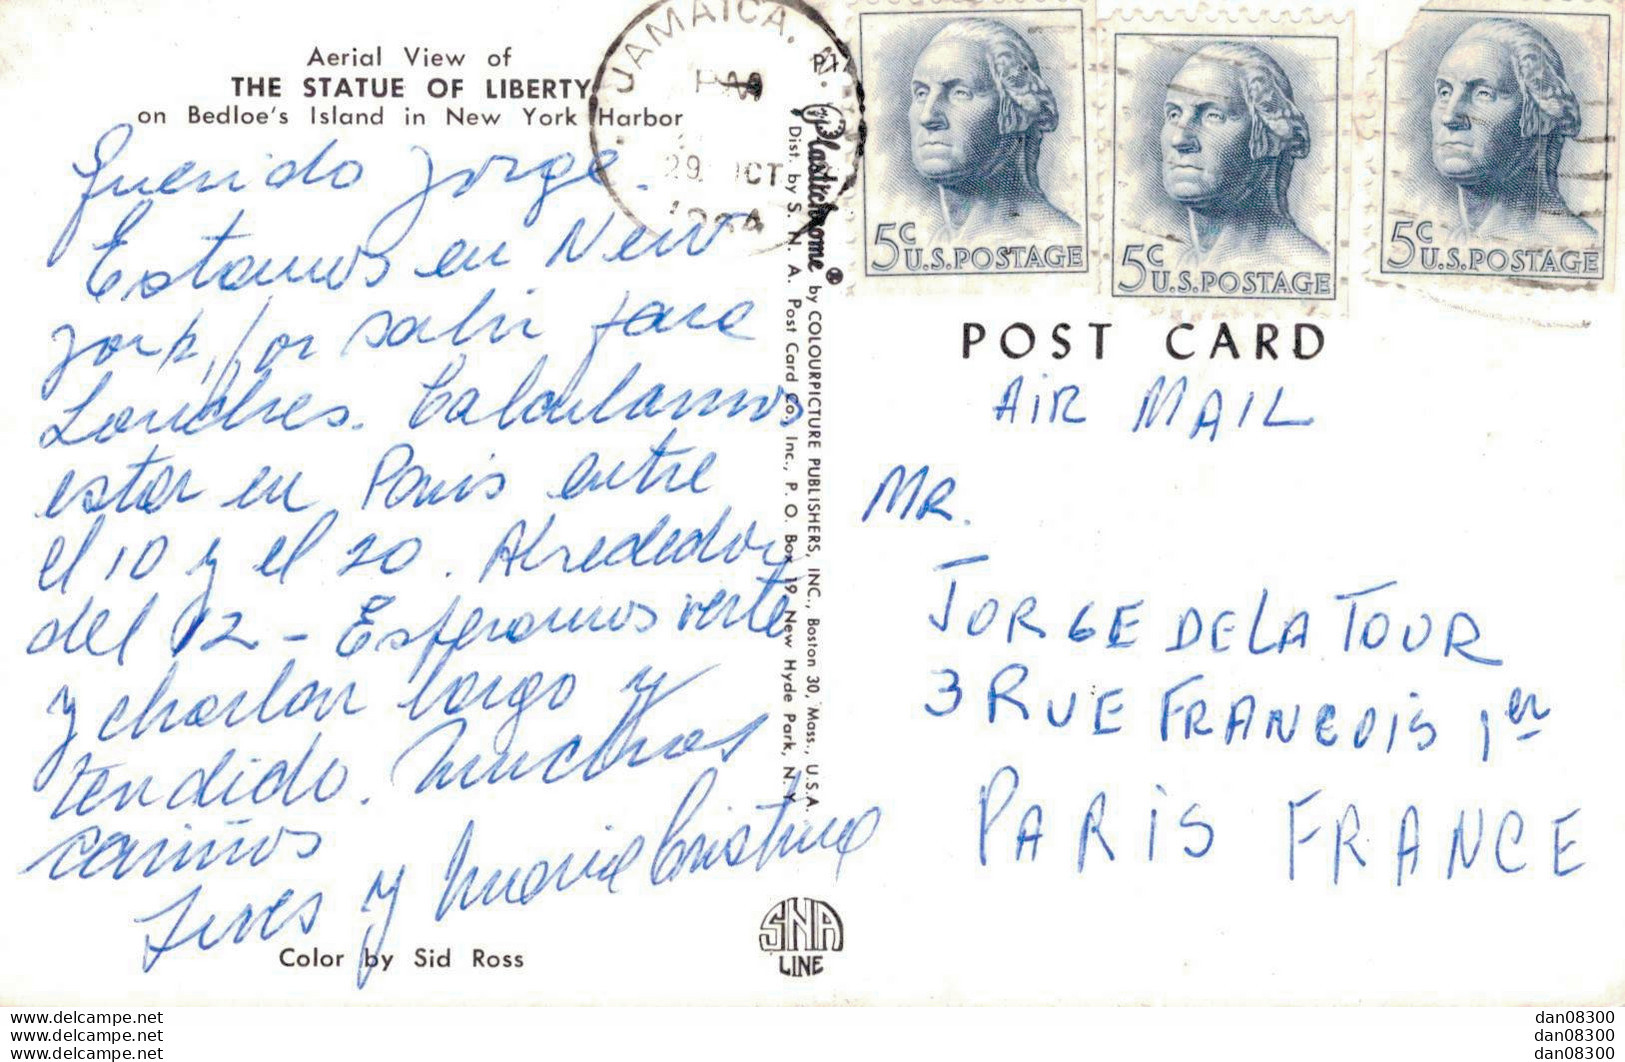 Aerial View of
THE STATUE OF LIBERTY
on Bedloe's Island in New York Harbor
Querido Jorge.
Estamos en New
York, por salir para
Londres. Calculamos
estar en Paris entre
el 10 y el 20. Alrededor
del 12 - Esperamos verte
y charlar largo y
tendido. Muchos
cariños
y Marie Cristine
Color by Sid Ross
JAMAICA, N.
PM
29 OCT
Plastichrome® by COLOURPICTURE PUBLISHERS, INC., Boston 30, Mass., U.S.A.
Dist. by S. N. A. Post Card Co., Inc., P. O. Box 19, New Hyde Park, N. Y.
SNA
LINE
5c
U.S. POSTAGE
5c
U.S. POSTAGE
5c
U.S. POSTAGE
POST CARD
AiR MAiL
MR.
JORGE DE LA TOUR
3 RUE FRANCOiS 1er
PARiS FRANCE
www.delcampe.net
www.delcampe.net
www.delcampe.net
dan08300
dan08300
dan08300